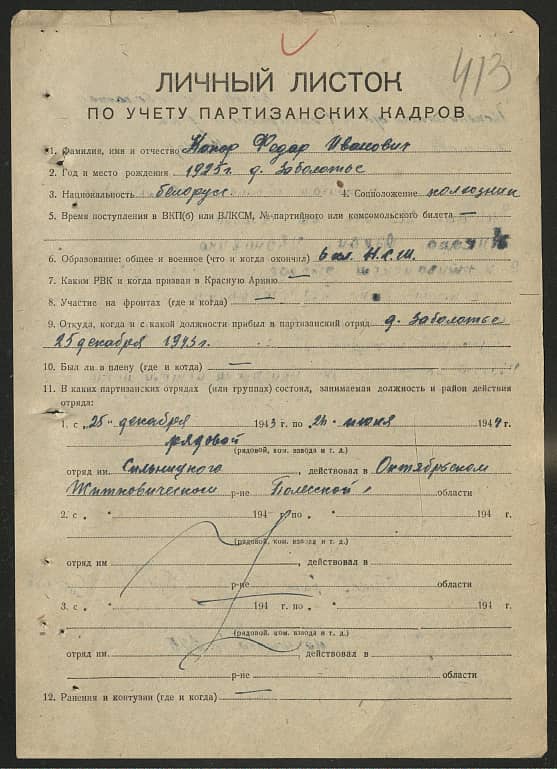 413
ЛИЧНЫЙ ЛИСТОК
ПО УЧЕТУ ПАРТИЗАНСКИХ КАДРОВ
1. Фамилия, имя и отчество Федор Иванович
2. Год и место рождения 1925 г. д. Заболотье
3. Национальность белорус 4. Соцположение колхозник
5. Время поступления в ВКП(б) или ВЛКСМ, № партийного или комсомольского билета —
6. Образование: общее и военное (что и когда окончил) 6 кл. Н.С.Ш.
7. Каким РВК и когда призван в Красную Армию —
8. Участие на фронтах (где и когда) —
9. Откуда, когда и с какой должности прибыл в партизанский отряд д. Заболотье
25 декабря 1943 г.
10. Был ли в плену (где и когда) —
11. В каких партизанских отрядах (или группах) состоял, занимаемая должность и район действия
отряда:
1. с „25" декабря 1943 г. по „ " июня 1944 г.
рядовой
(рядовой, ком. взвода и т. д.)
отряд им. Сильницкого, действовал в Октябрьском
Житковичском р-не Полесской области
2. с „ " 194 г. по „ " 194 г.
(рядовой, ком. взвода и т. д.)
отряд им , действовал в
р-не области
3. с „ " 194 г. по „ " 194 г.
(рядовой, ком. взвода и т. д.)
отряд им. , действовал в
р-не области
12. Ранения и контузии (где и когда) —